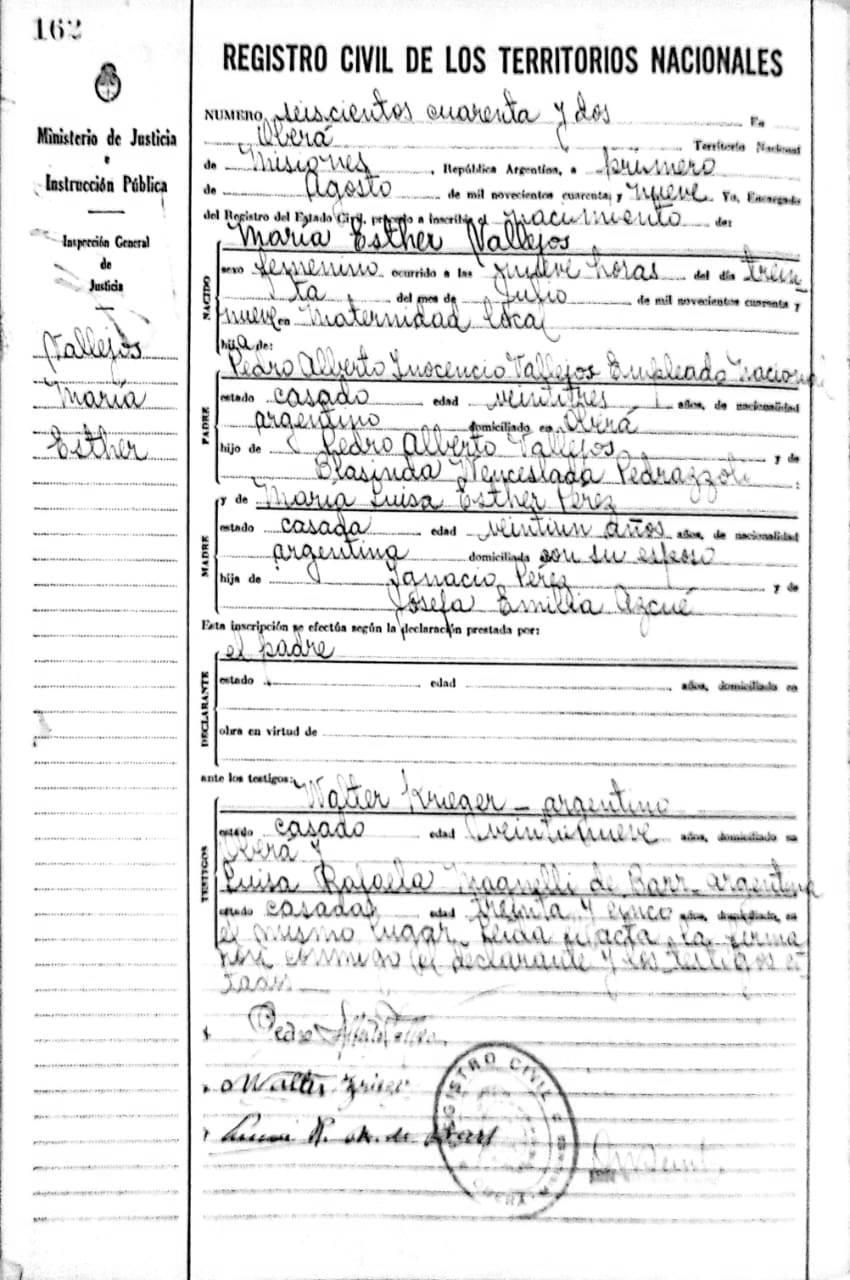 162
REGISTRO CIVIL DE LOS TERRITORIOS NACIONALES
Ministerio de Justicia
e
Instrucción Pública
Inspección General
de
Justicia
Vallejos
María
Esther
NUMERO seiscientos cuarenta y dos En
Oberá Territorio Nacional
de Misiones, República Argentina, a primero
de Agosto de mil novecientos cuarenta y nueve Yo, Encargado
del Registro del Estado Civil, procedo a inscribir el nacimiento de:
NACIDO
María Esther Vallejos
sexo femenino ocurrido a las nueve horas del día trein
ta del mes de Julio de mil novecientos cuarenta y
nueve en Maternidad local
hija de:
PADRE
Pedro Alberto Inocencio Vallejos Empleado nacional
estado casado edad veintitres años, de nacionalidad
argentino domiciliado en Oberá
hijo de Pedro Alberto Vallejos y de
Olasinda Wenceslada Pedrazzoli;
MADRE
y de María Luisa Esther Perez
estado casada edad veintiun años años, de nacionalidad
argentina domiciliada con su esposo
hija de Ignacio Pérez y de
Josefa Emilia Azcué
Esta inscripción se efectúa según la declaración prestada por:
DECLARANTE
el padre
estado edad años, domiciliado en
obra en virtud de
ante los testigos:
TESTIGOS
Walter Krieger - argentino
estado casado edad veintinueve años, domiciliado en
Oberá y
Luisa Rafaela de Barr - argentina
estado casada edad treinta y cinco años, domiciliado en
el mismo lugar. Leida el acta la firma
ron conmigo el declarante y los testigos ci-
tados -
Pedro Alberto
Walter Krieger
Luisa R. M. de Barr
REGISTRO CIVIL
OBERA